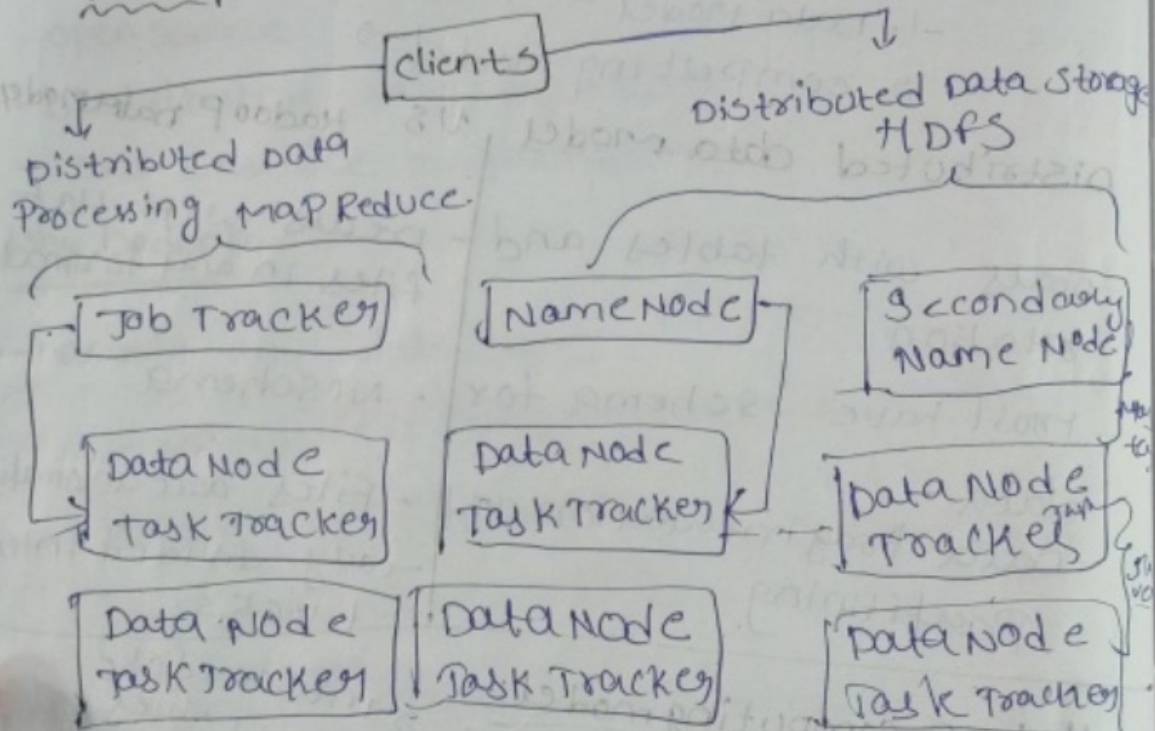 Clients
Distributed Data Storage
HDFS
Distributed Data
Processing MapReduce.
Job Tracker
NameNode
Secondary
Name Node
Data Node
Task Tracker
Data Node
Task Tracker
Data Node
Task
Tracker
Data Node
Task Tracker
Data Node
Task Tracker
Data Node
Task Tracker